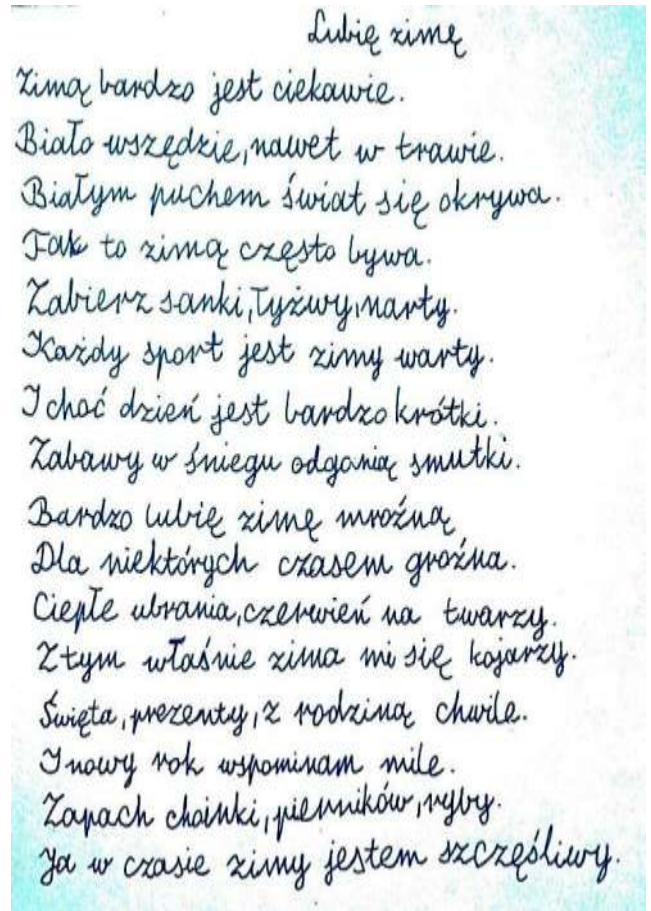 Lubię zimę
Zimą bardzo jest ciekawie.
Biało wszędzie, nawet w trawie.
Białym puchem świat się okrywa.
Tak to zimą często bywa.
Zabierz sanki, łyżwy, narty.
Każdy sport jest zimy warty.
I choć dzień jest bardzo krótki.
Zabawy w śniegu odgonią smutki.
Bardzo lubię zimę mroźną
Dla niektórych czasem groźna.
Ciepłe ubrania, czerwień na twarzy.
Z tym właśnie zima mi się kojarzy.
Święta, prezenty, z rodziną chwile.
I nowy rok wspominam mile.
Zapach choinki, pierników, ryby.
Ja w czasie zimy jestem szczęśliwy.